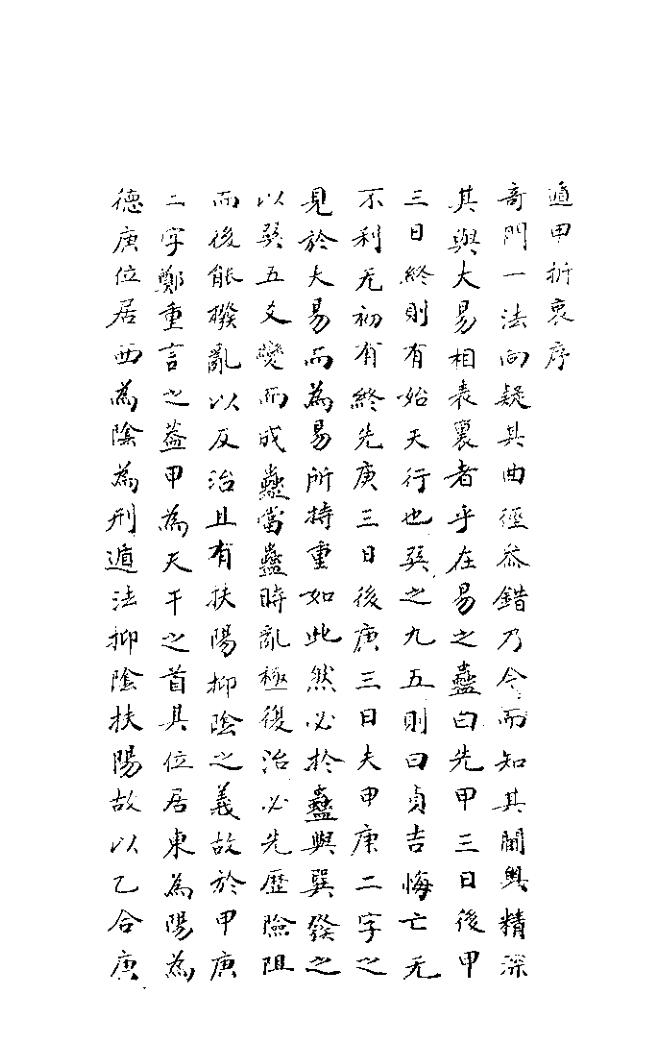 遁甲折衷序
竒門一法向疑其曲徑叅錯乃今而知其閫奧精深
其與大易相表裏者乎在易之蠱曰先甲三日後甲
三日終則有始天行也巽之九五則曰貞吉悔亡无
不利无初有終先庚三日後庚三日夫甲庚二字之
見於大易而為易所持重如此然必於蠱與巽發之
以巽五爻變而成蠱當蠱時亂極復治必先歷險阻
而後能撥亂以反治且有扶陽抑陰之義故於甲庚
二字鄭重言之葢甲為天干之首其位居東為陽為
德庚位居西為陰為刑遁法抑陰扶陽故以乙合庚